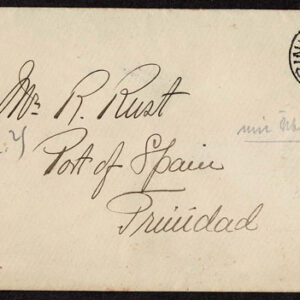 Mr R. Rust
Port of Spain
Trinidad